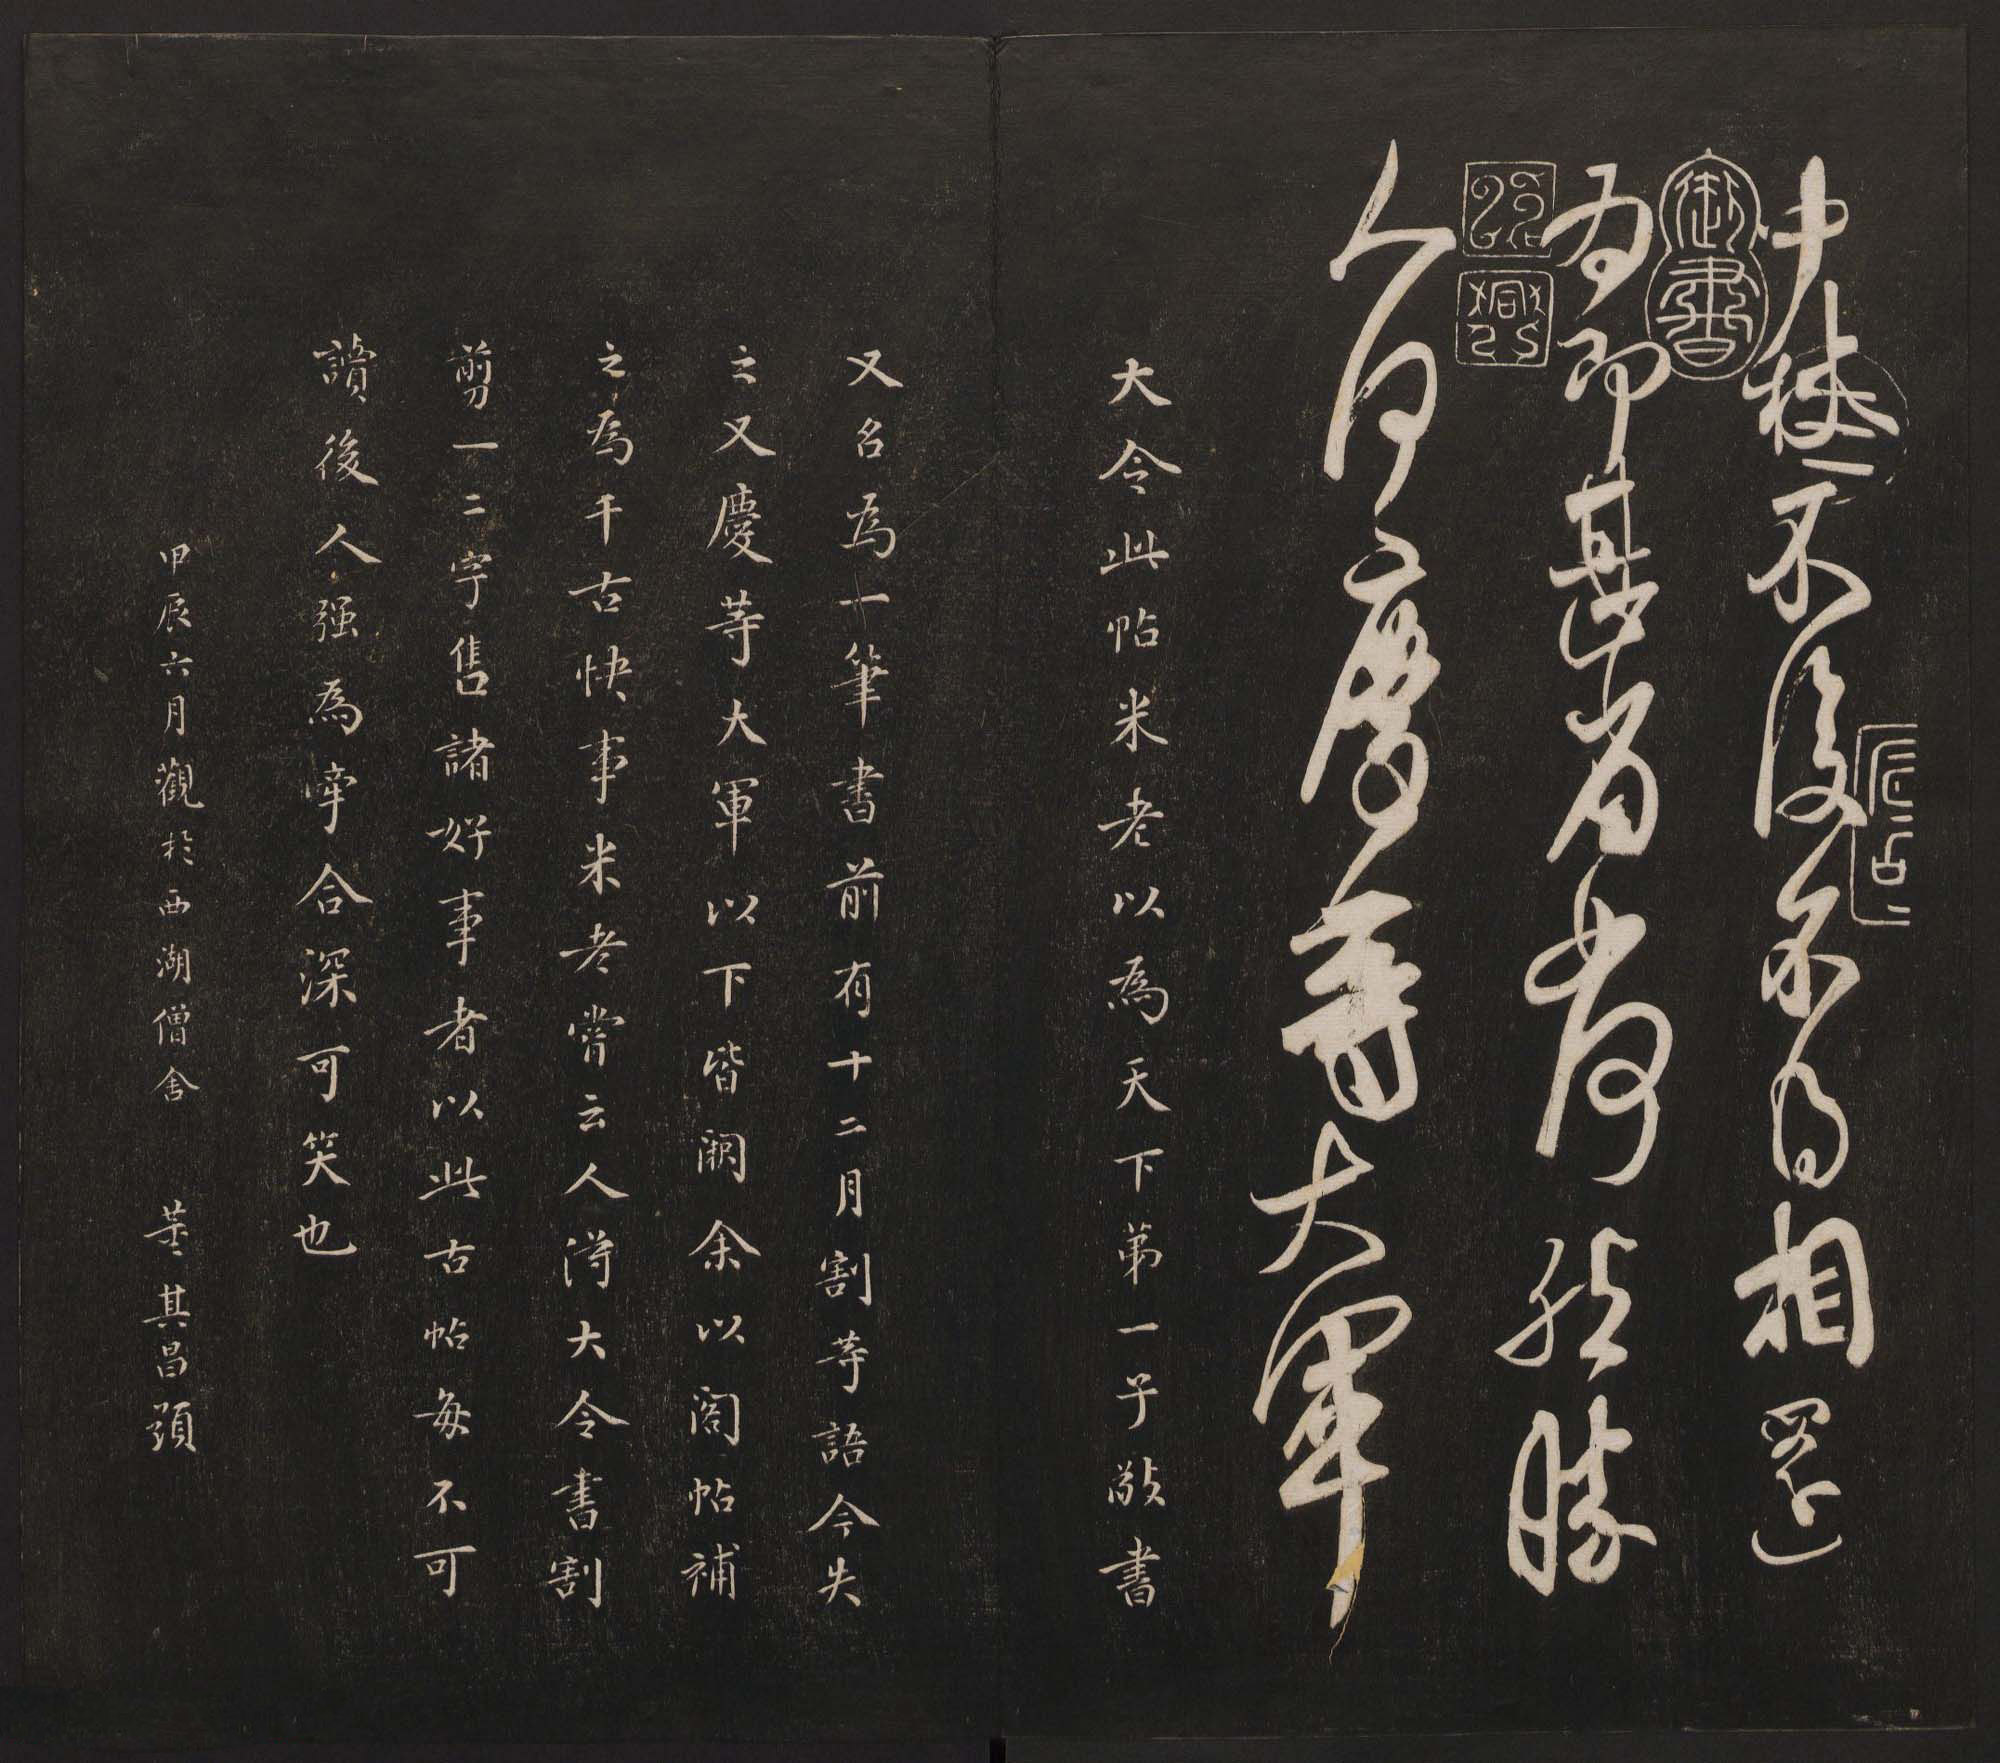 中秋不復不得相還
為即甚省如何然勝
人何慶等大軍
御書
大令此帖米老以為天下第一子敬書
又名為一筆書前有十二月割等語今失
之又慶等大軍以下皆闕余以閣帖補
之為千古快事米老嘗云人得大令書割
剪一二字售諸好事者以此古帖每不可
讀後人强為牽合深可笑也
甲辰六月觀於西湖僧舍 董其昌題